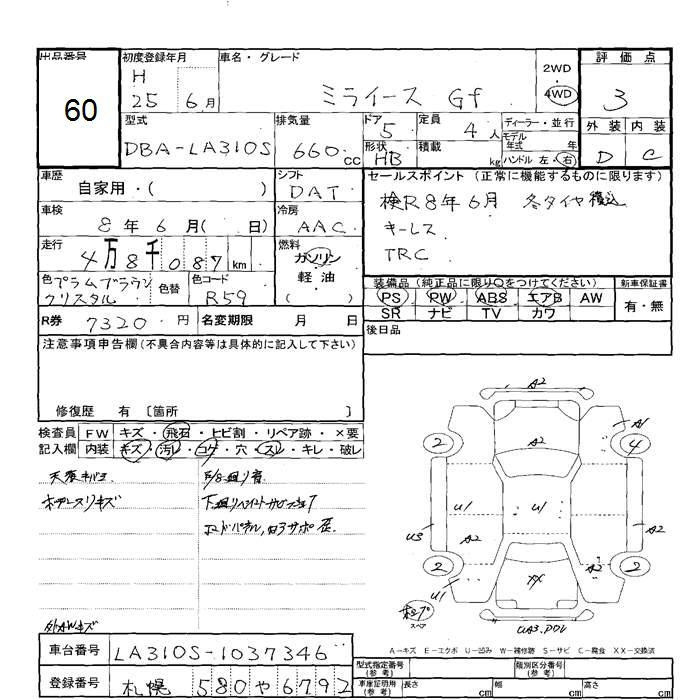 出品番号
60
初度登録年月
H
25 6月
車名・グレード
ミライース Gf
2WD
・
4WD
評価点
3
外装 内装
D C
型式
DBA-LA310S
排気量
660cc
ドア
5
定員
4人
形状
HB
積載
kg
ディーラー・並行
モデル
年式 年
ハンドル 左・右
車歴
自家用・( )
シフト
DAT
セールスポイント (正常に機能するものに限ります)
検R8年6月 冬タイヤ積込
キーレス
TRC
車検
8年6月( 日)
冷房
AAC
走行
4万8千087km
燃料
ガソリン
軽・油
( )
色 プラムブラウン
クリスタル
色替
色コード
R59
装備品 (純正品に限り○をつけてください)
PS PW ABS エアB AW
SR ナビ TV カワ
新車保証書
有・無
R券 7320円
名変期限 月 日
後日品
注意事項申告欄(不具合内容等は具体的に記入して下さい)
修復歴 有 〔箇所 〕
検査員 FW キズ・飛石・ヒビ割・リペア跡・×要
記入欄 内装 キズ・汚レ・コゲ・穴・スレ・キレ・破レ
下廻りペイント
外AWキズ
A2
A2
A1
2
4
U1
U1
U3
A2
A2
A2
2
2
U1
XX
スペア
A-キズ E-エクボ U-凹み W-補修跡 S-サビ C-腐食 XX-交換済
車台番号
LA310S-1037346
登録番号
札幌 580 や 6792
型式指定番号
(参考)
類別区分番号
(参考)
車庫証明用
(参考)
長さ cm 幅 cm 高さ cm